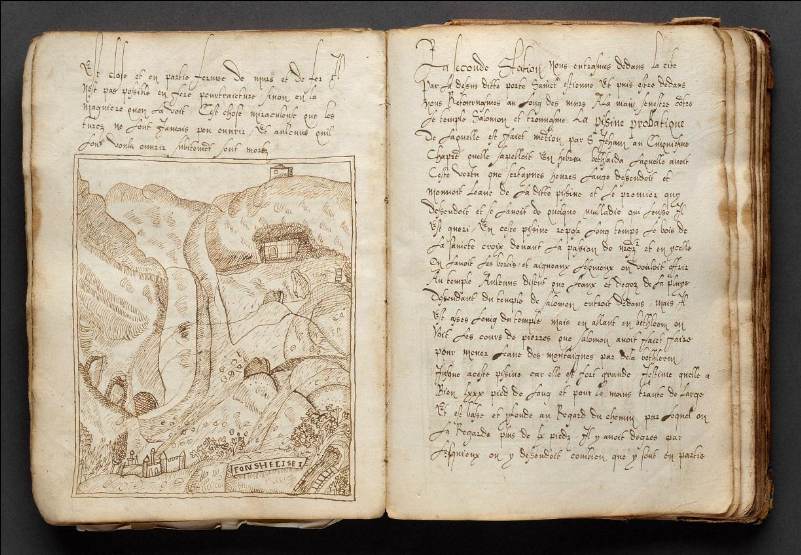 Est close et en partie ferree de murs et de fer Il
Nest pas possible en fere pourtraicture sinon en la
Magniere quon la voit Cest chose miraculeuse que les
turcz ne lont jamais peu ouvrir Et aulcuns quil
lont voulu ouvrir subitement sont mors
FONS HELISEI
La seconde station Nous entrasmes dedans la cite
Par la desus ditte porte sainct estienne Et puis estre dedans
Nous Retournasmes au long des murs A la main senestre
le temple Salomon et trouvasmes La pisine probatique
De laquelle est faict mention par St Jehan au Cinquiesme
Chapitre quelle sappelloit En hebrieu bethsaida laquelle avoit
Ceste vertu que certaines heures lange desendoit et
mouvoit leaue de la ditte pisine et le premier quy
desendoit et se lavoit de quelque malladie qui feusse Il
Est gueri En ceste pisine reposa long temps le bois de
La saincte croix devant la pasion de et en ycelle
On lavoit les brebis et aigneaux lesquieux on vouloit offrir
Au temple Aulcuns disent que leaux et degoz de la pluye
Desendant du temple de salomon entroit dedans mais Il
Est ases loing du temple mais en allant en bethleem on
voit les cours de pierres que salomon avoit faict faire
pour mener leaue des montaignes par dela bethleem
Jusque a ceste pisine car elle est fort grande Jestime quelle a
Bien lxxx pied de long et pour le moins trante de large
Et est basse et profonde au Regard du chemin par lequel on
La Regarde plus de lx piedz Il y avoit degres par
lesquieux on y desendoit combien que y sont en partie